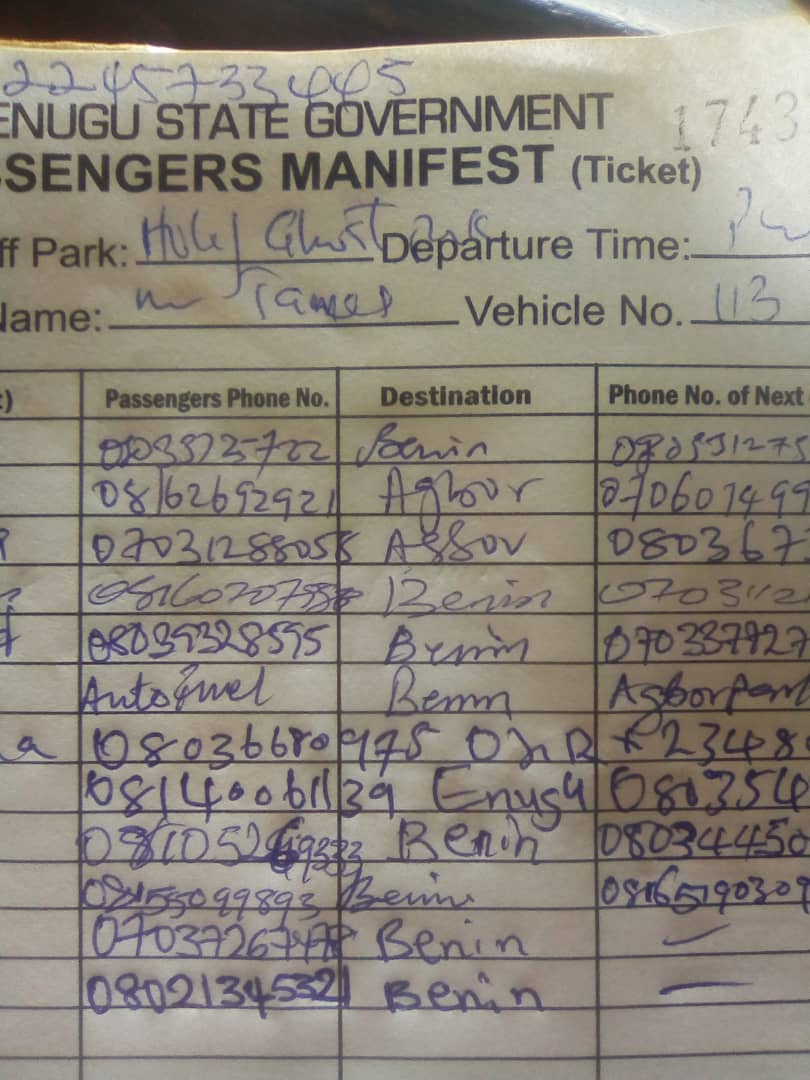 22457334445
ENUGU STATE GOVERNMENT 1743
SSENGERS MANIFEST (Ticket)
ff Park: Holy Ghost Park Departure Time:
Name: mr James Vehicle No. 113
:) Passengers Phone No. Destination Phone No. of Next
Benin
08162692921 Agbor 070607499
07031288058 Agbor 080367
Benin 0703112
08039328595 Benin 070337727
Auto fuel Benin Agborpark
a 08036680975 +2348
08140061139 Enugu 080354
Benin 080344450
08155099893 Benin 08165190309
Benin
08021345321 Benin —